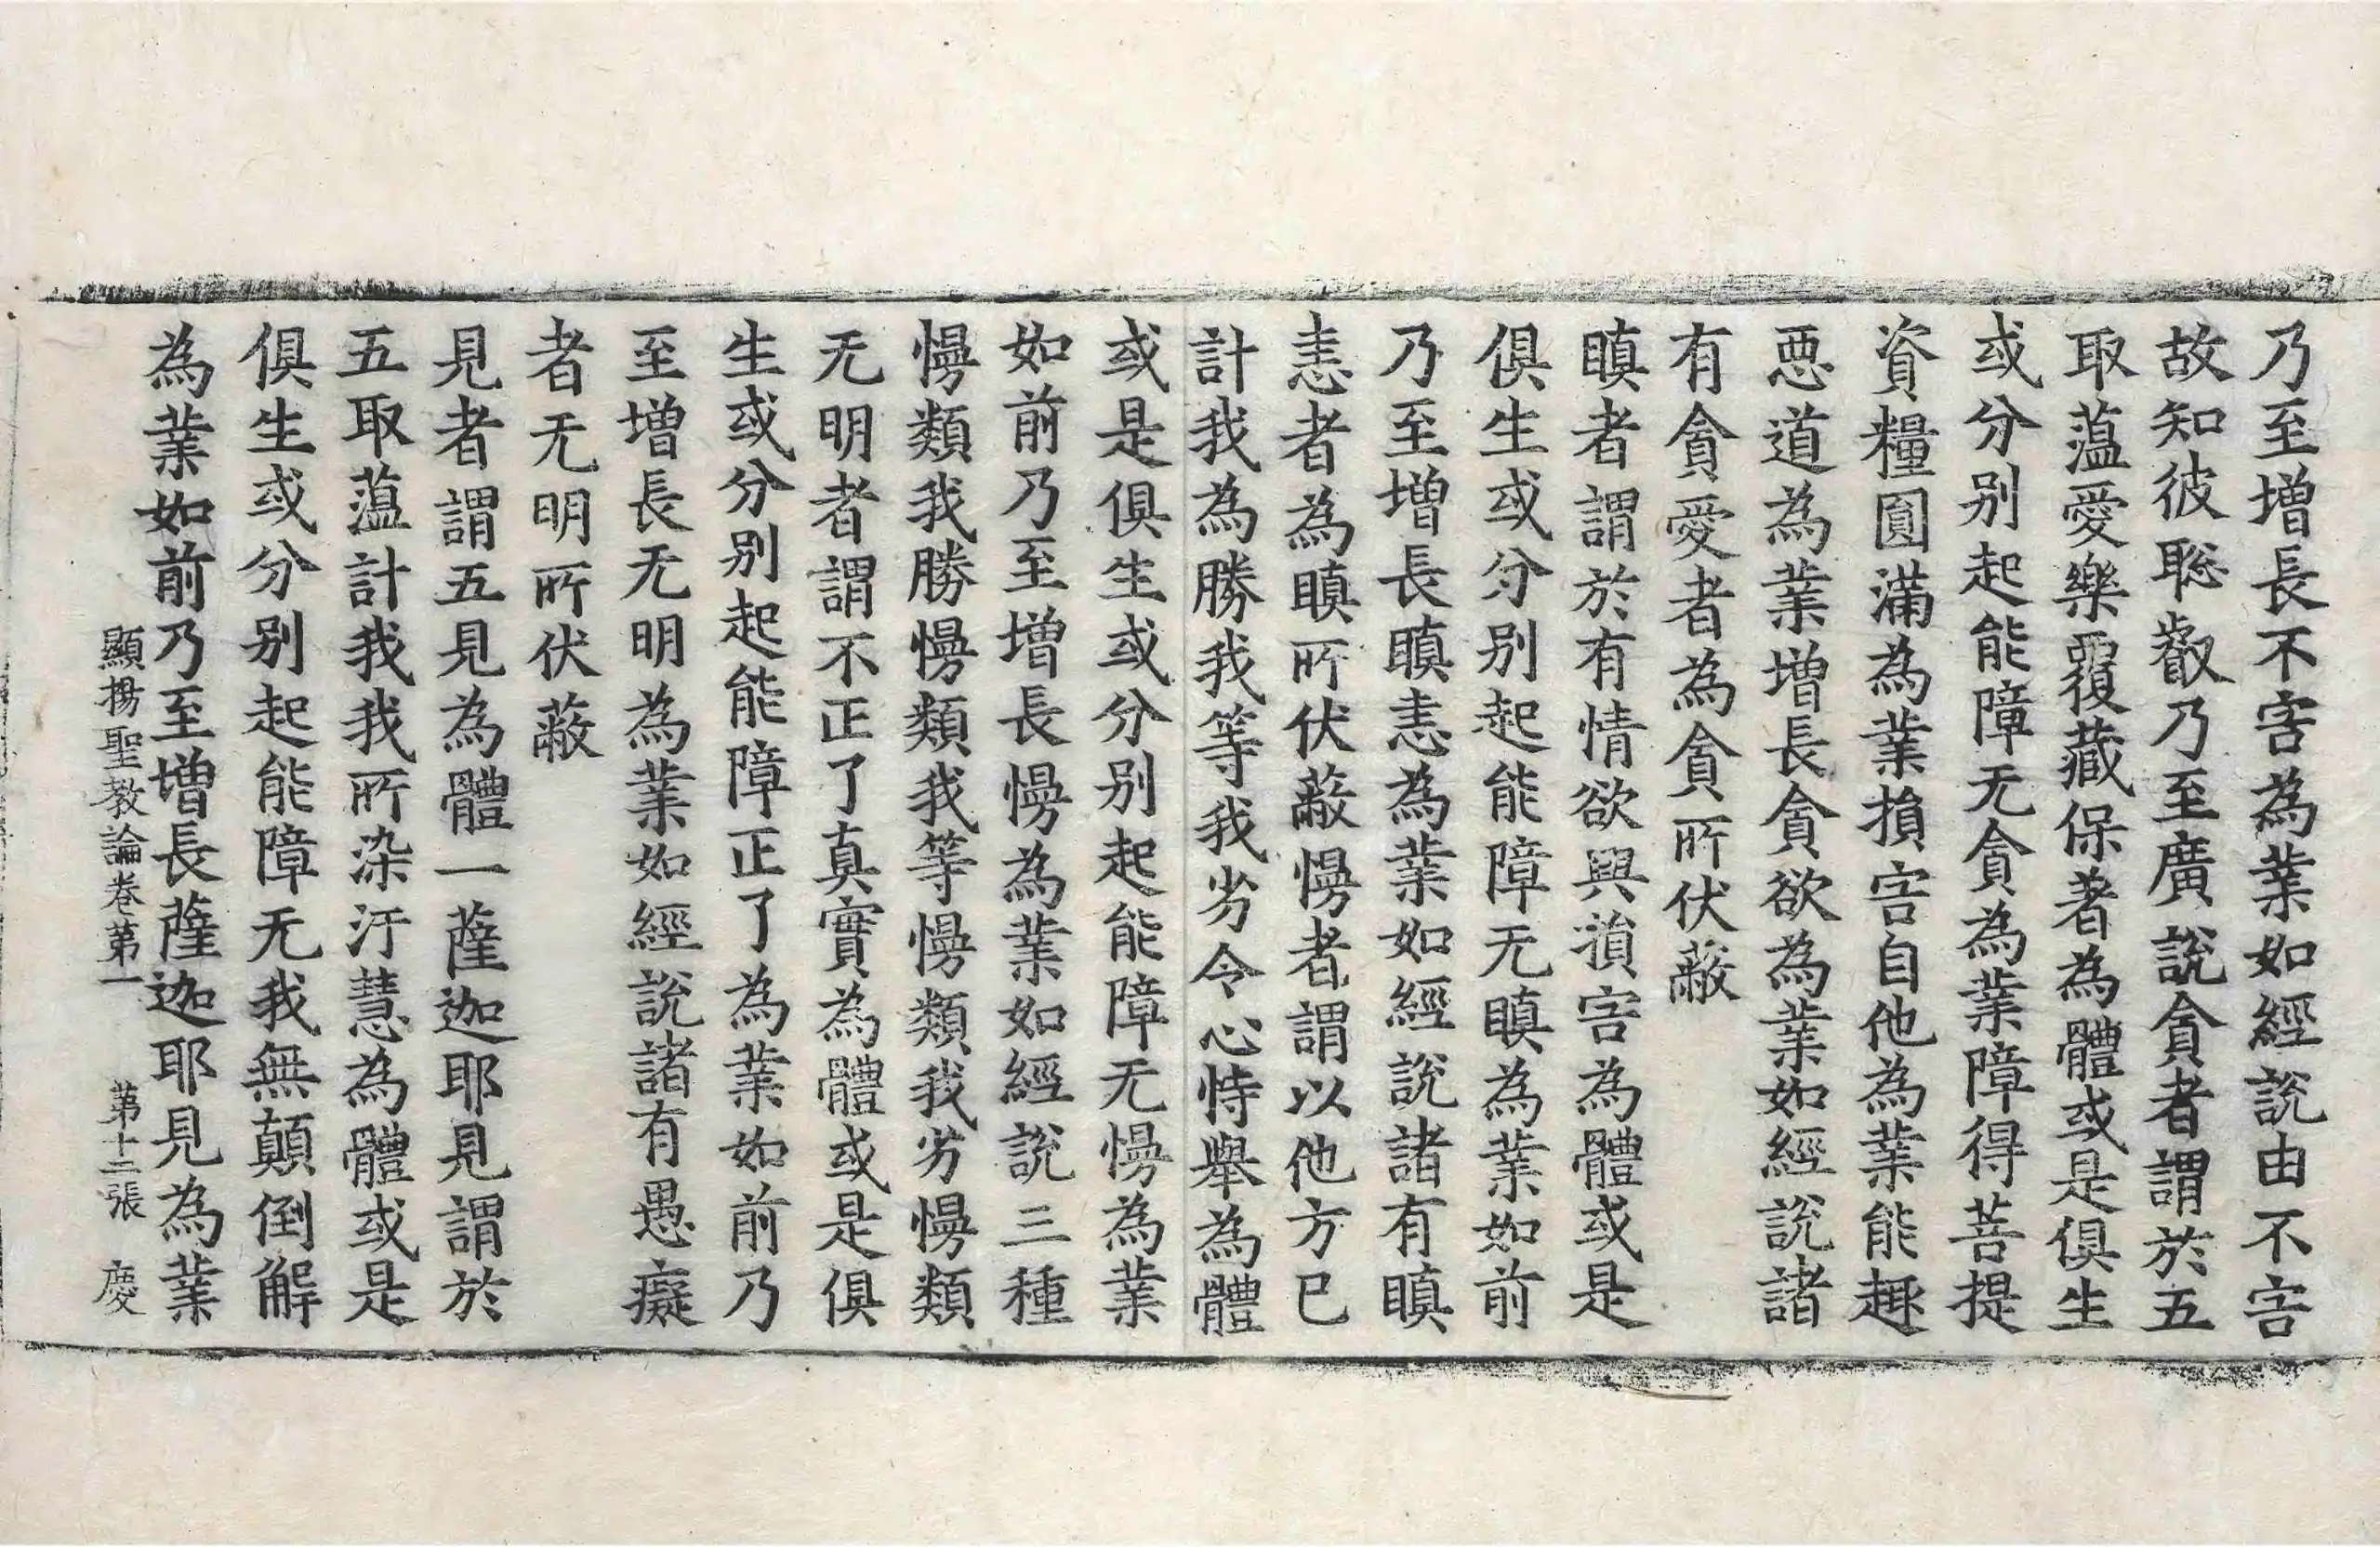 乃至增長不害為業如經說由不害
故知彼聡叡乃至廣說貪者謂於五
取薀愛樂覆藏保著為體或是俱生
或分别起能障无貪為業障得菩提
資糧圓滿為業損害自他為業能趣
惡道為業增長貪欲為業如經說諸
有貪愛者為貪所伏蔽
瞋者謂於有情欲興損害為體或是
俱生或分别起能障无瞋為業如前
乃至增長瞋恚為業如經說諸有瞋
恚者為瞋所伏蔽慢者謂以他方已
計我為勝我等我劣令心恃舉為體
或是俱生或分别起能障无慢為業
如前乃至增長慢為業如經說三種
慢類我勝慢類我等慢類我劣慢類
无明者謂不正了真實為體或是俱
生或分别起能障正了為業如前乃
至增長无明為業如經說諸有愚癡
者无明所伏蔽
見者謂五見為體一薩迦耶見謂於
五取薀計我我所染汙慧為體或是
俱生或分别起能障无我無顛倒解
為業如前乃至增長薩迦耶見為業
顯揚聖教論卷苐一 苐十二張 慶